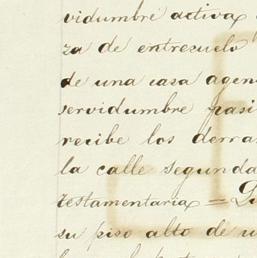 vidumbre activa
za de entresuelo
de una casa agen
servidumbre pasi
recibe los derra
la calle segunda
testamentaria =
su piso alto de u